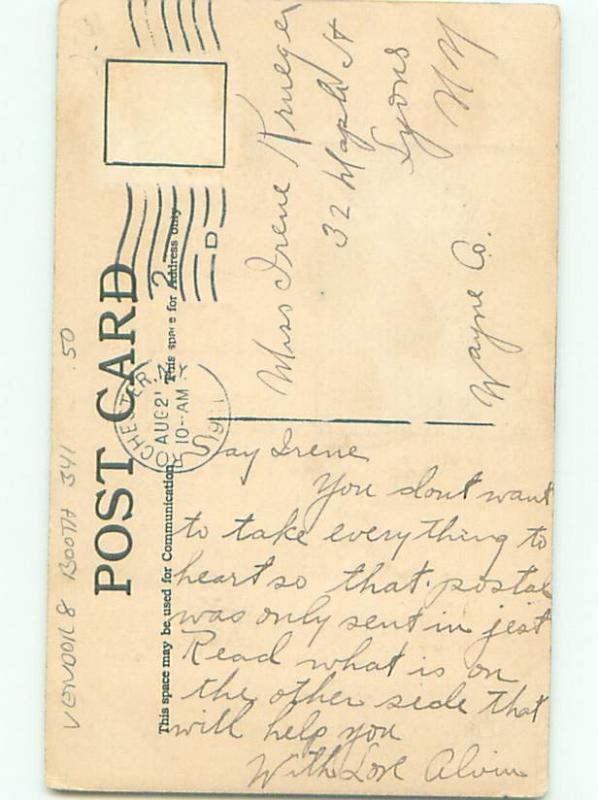 POST CARD
This space may be used for Communication.
This space for Address only
2
D
CHESTER, N.Y.
AUG 21
10-AM
191
Miss Irene Krueger
32 Maple St
Lyons
N Y
Wayne Co.
Say Irene
You dont want
to take everything to
heart so that postal
was only sent in jest
Read what is on
the other side that
will help you
With Love Alvin
VENDOR 8 BOOTH 341 .50